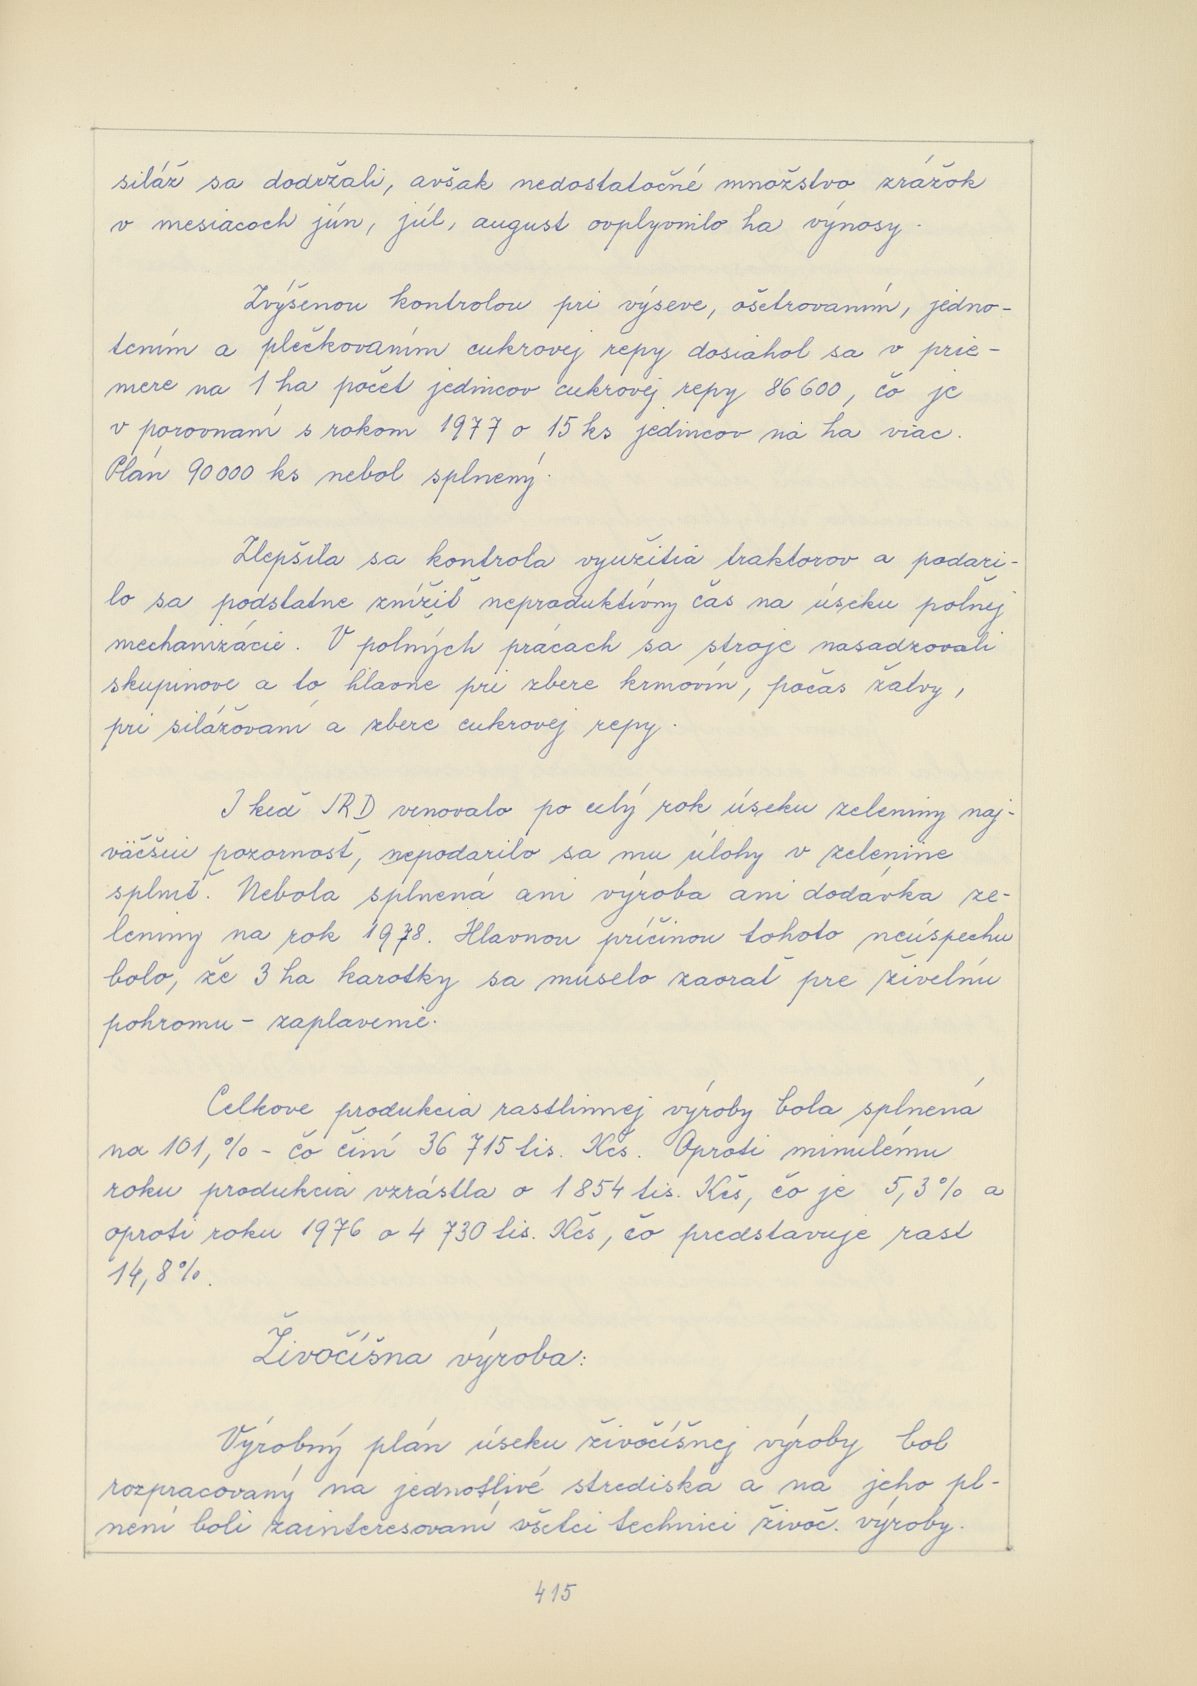 siláž sa dodržali, avšak nedostatočné množstvo zrážok
v mesiacoch jún, júl, august ovplyvnilo ha výnosy.
Zvýšenou kontrolou pri výseve, ošetrovaním, jedno-
tením a plečkovaním cukrovej repy dosiahol sa v prie-
mere na 1 ha počet jedincov cukrovej repy 86 600, čo je
v porovnaní s rokom 1977 o 15 ks jedincov na ha viac.
Plán 90 000 ks nebol splnený.
Zlepšila sa kontrola využitia traktorov a podari-
lo sa podstatne znížiť neproduktívny čas na úseku poľnej
mechanizácie. V poľných prácach sa stroje nasadzovali
skupinove a to hlavne pri zbere krmovín, počas žatvy,
pri silážovaní a zbere cukrovej repy.
I keď JRD venovalo po celý rok úseku zeleniny naj-
väčšiu pozornosť, nepodarilo sa mu úlohy v zelenine
splniť. Nebola splnená ani výroba ani dodávka ze-
leniny na rok 1978. Hlavnou príčinou tohoto neúspechu
bolo, že 3 ha karotky sa muselo zaorať pre živelnú
pohromu - zaplavenie.
Celkove produkcia rastlinnej výroby bola splnená
na 101,% - čo činí 36 715 tis. Kčs. Oproti minulému
roku produkcia vzrástla o 1 854 tis. Kčs, čo je 5,3% a
oproti roku 1976 o 4 730 tis. Kčs, čo predstavuje rast
14,8%.
Živočíšna výroba:
Výrobný plán úseku živočíšnej výroby bol
rozpracovaný na jednotlivé strediska a na jeho pl-
není boli zainteresovaní všetci technici živoč. výroby.
415